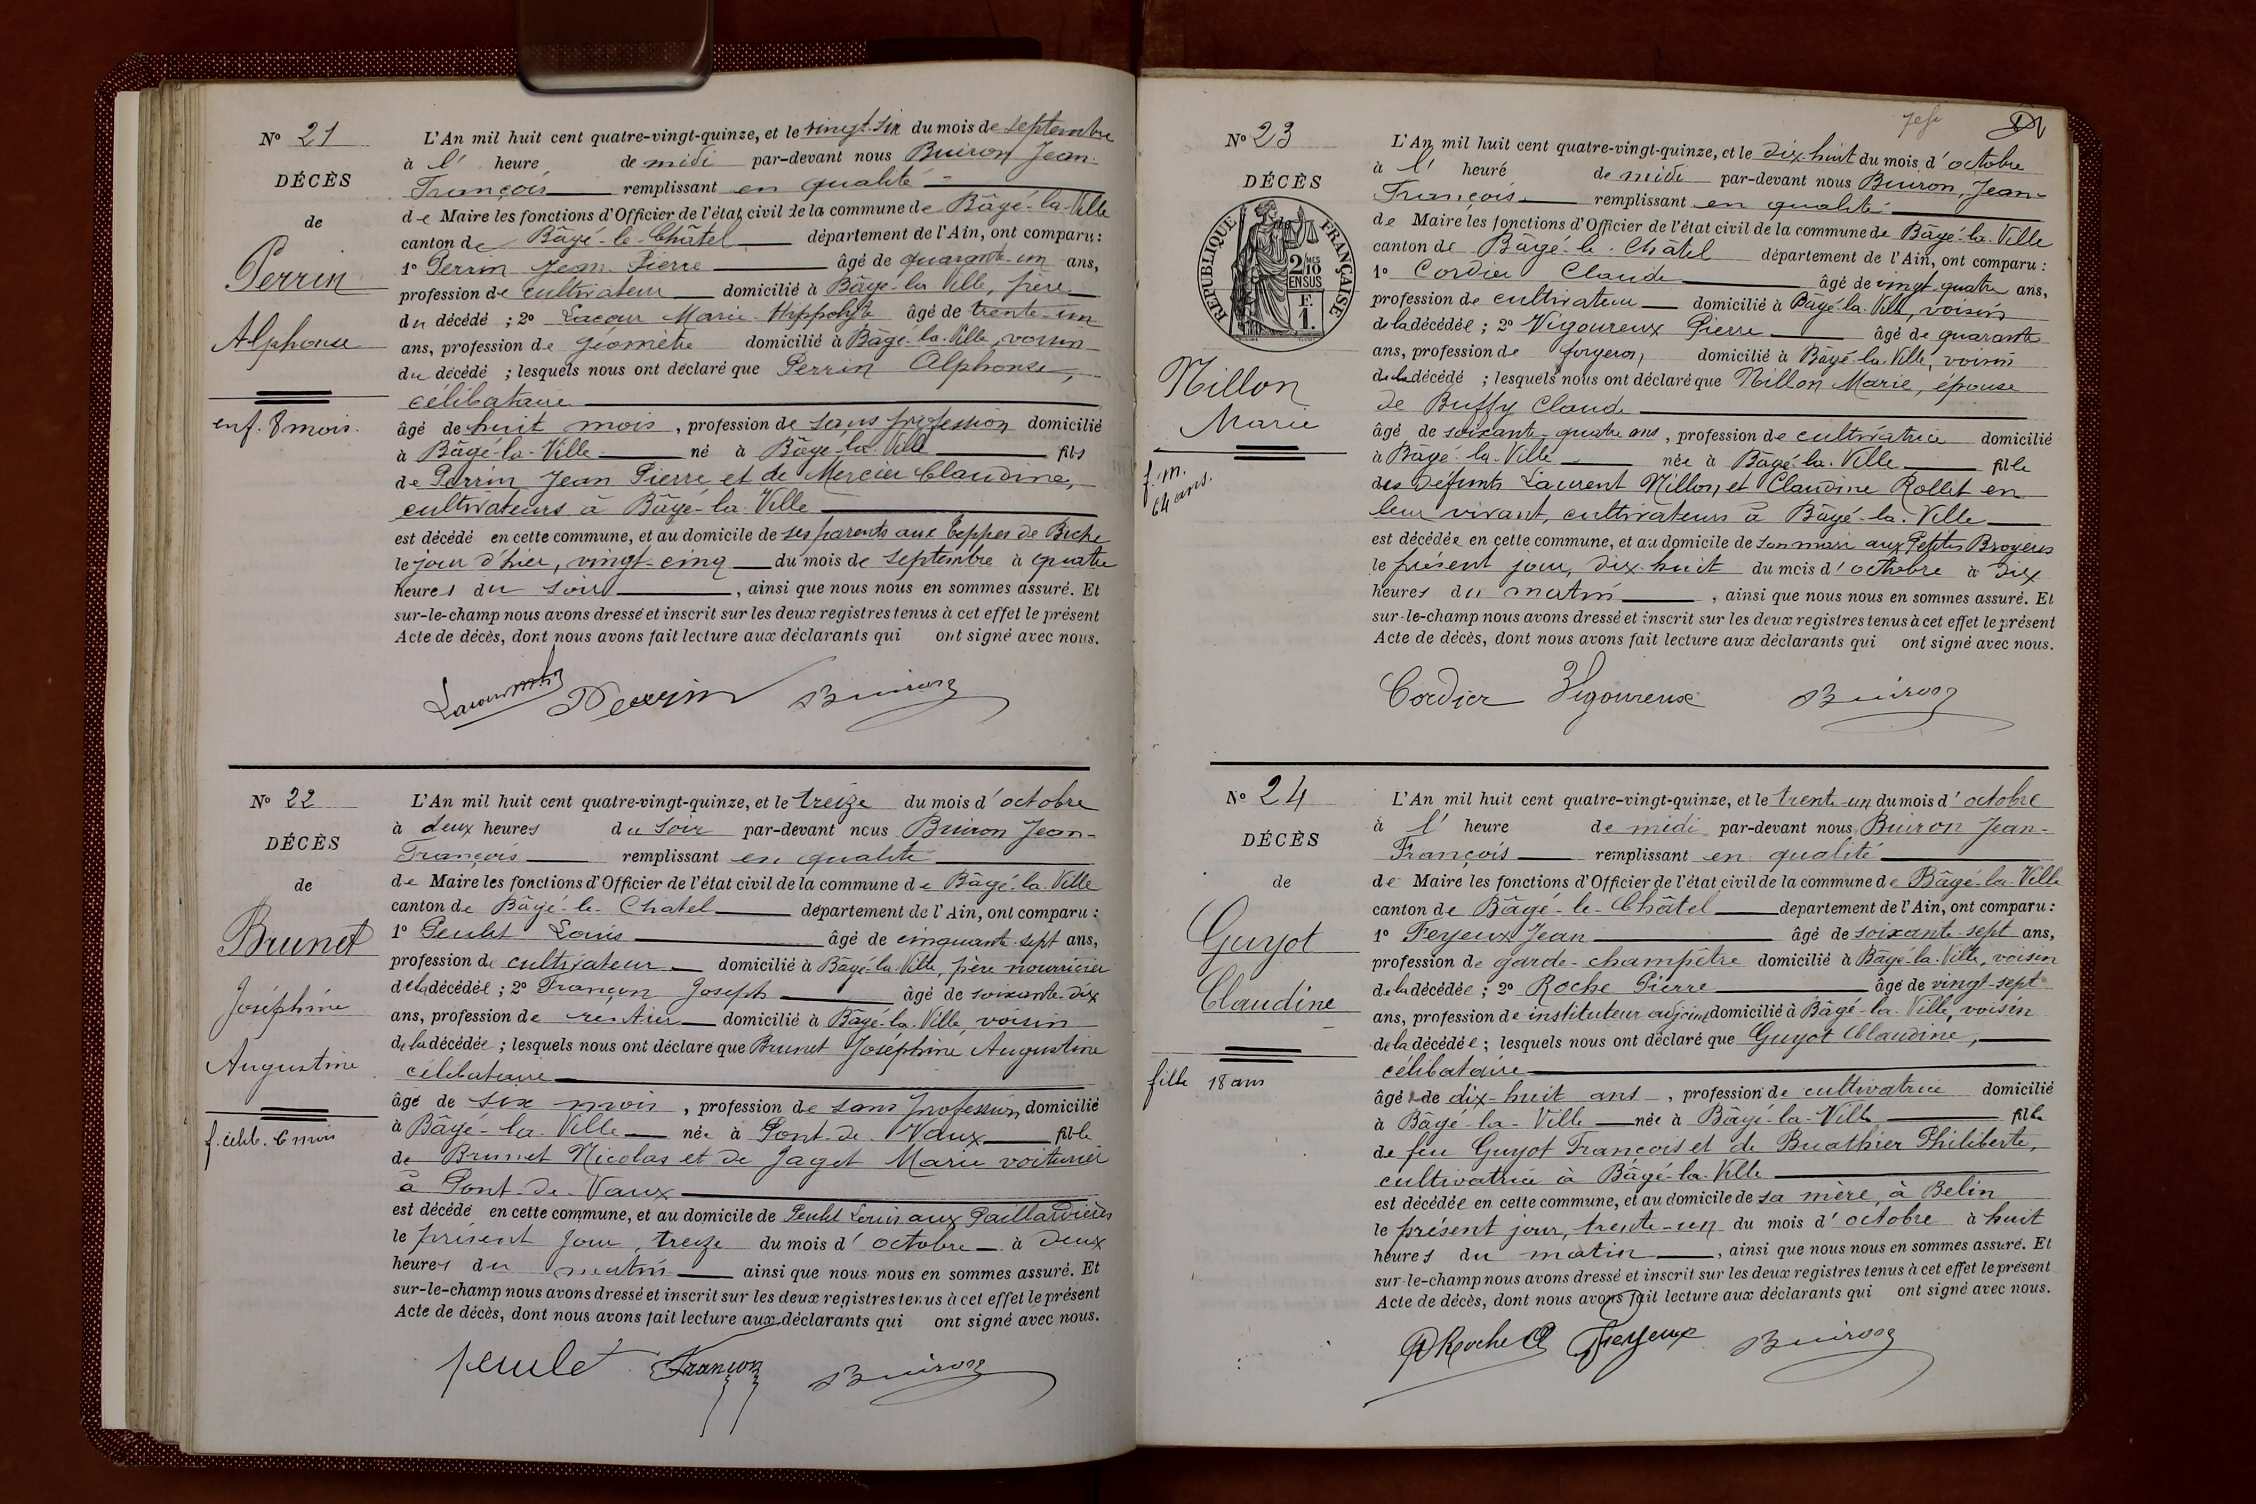 Nº 21
DÉCÈS
de
Perrin
Alphonse
enf. 8 mois.
L'An mil huit cent quatre-vingt-quinze, et le vingt-six du mois de septembre
à l' heure de midi par-devant nous Buiron Jean-
François remplissant en qualité
de Maire les fonctions d'Officier de l'état civil de la commune de Bâgé-la-Ville
canton de Bâgé-le-Châtel département de l'Ain, ont comparu :
1º Perrin Jean Pierre âgé de quarante-un ans,
profession de cultivateur domicilié à Bâgé-la-Ville, père
du décédé ; 2º Lacour Marie Hippolyte âgé de trente-un
ans, profession de géomètre domicilié à Bâgé-la-Ville, voisin
du décédé ; lesquels nous ont déclaré que Perrin Alphonse,
célibataire
âgé de huit mois, profession de sans profession domicilié
à Bâgé-la-Ville né à Bâgé-la-Ville fils
de Perrin Jean Pierre et de Mercier Claudine,
cultivateurs à Bâgé-la-Ville
est décédé en cette commune, et au domicile de ses parents aux Teppes de Biche
le jour d'hier, vingt-cinq du mois de septembre à quatre
heures du soir, ainsi que nous nous en sommes assuré. Et
sur-le-champ nous avons dressé et inscrit sur les deux registres tenus à cet effet le présent
Acte de décès, dont nous avons fait lecture aux déclarants qui ont signé avec nous.
Lacour Perrin Buiron
Nº 22
DÉCÈS
de
Brunet
Joséphine
Augustine
f. célib. 6 mois
L'An mil huit cent quatre-vingt-quinze, et le treize du mois d'octobre
à deux heures du soir par-devant nous Buiron Jean-
François remplissant en qualité
de Maire les fonctions d'Officier de l'état civil de la commune de Bâgé-la-Ville
canton de Bâgé-le-Chatel département de l'Ain, ont comparu :
1º Peulet Louis âgé de cinquante-sept ans,
profession de cultivateur domicilié à Bâgé-la-Ville, père nourricier
de la décédée ; 2º Françon Joseph âgé de soixante-dix
ans, profession de rentier domicilié à Bâgé-la-Ville, voisin
de la décédée ; lesquels nous ont déclaré que Brunet Joséphine Augustine
célibataire
âgé de six mois, profession de sans profession domicilié
à Bâgé-la-Ville née à Pont-de-Vaux fille
de Brunet Nicolas et de Jaget Marie voiturier
à Pont-de-Vaux
est décédé en cette commune, et au domicile de Peulet Louis aux Paillardières
le présent jour, treize du mois d'octobre à deux
heures du matin ainsi que nous nous en sommes assuré. Et
sur-le-champ nous avons dressé et inscrit sur les deux registres tenus à cet effet le présent
Acte de décès, dont nous avons fait lecture aux déclarants qui ont signé avec nous.
Peulet Françon Buiron
Nº 23
DÉCÈS
RÉPUBLIQUE FRANÇAISE
2/10 MES
EN SUS
F.
1.
Millon
Marie
f. m.
64 ans.
L'An mil huit cent quatre-vingt-quinze, et le dix-huit du mois d'octobre
à l' heure de midi par-devant nous Buiron, Jean-
François remplissant en qualité
de Maire les fonctions d'Officier de l'état civil de la commune de Bâgé-la-Ville
canton de Bâgé-le-Châtel département de l'Ain, ont comparu :
1º Cordier Claude âgé de vingt-quatre ans,
profession de cultivateur domicilié à Bâgé-la-Ville, voisin
de la décédée ; 2º Vigoureux Pierre âgé de quarante
ans, profession de forgeron, domicilié à Bâgé-la-Ville, voisin
de la décédé ; lesquels nous ont déclaré que Millon Marie, épouse
de Buffy Claude
âgé de soixante-quatre ans, profession de cultivatrice domicilié
à Bâgé-la-Ville née à Bâgé-la-Ville fille
des défunts Laurent Millon, et Claudine Rollet en
leur vivant, cultivateurs à Bâgé-la-Ville
est décédée en cette commune, et au domicile de son mari aux Petits Broyers
le présent jour, dix-huit du mois d'octobre à dix
heures du matin, ainsi que nous nous en sommes assuré. Et
sur-le-champ nous avons dressé et inscrit sur les deux registres tenus à cet effet le présent
Acte de décès, dont nous avons fait lecture aux déclarants qui ont signé avec nous.
Cordier Vigoureux Buiron
Nº 24
DÉCÈS
de
Guyot
Claudine
fille 18 ans
L'An mil huit cent quatre-vingt-quinze, et le trente-un du mois d'octobre
à l' heure de midi par-devant nous Buiron Jean-
François remplissant en qualité
de Maire les fonctions d'Officier de l'état civil de la commune de Bâgé-la-Ville
canton de Bâgé-le-Châtel département de l'Ain, ont comparu :
1º Feyeux Jean âgé de soixante-sept ans,
profession de garde-champêtre domicilié à Bâgé-la-Ville, voisin
de la décédée ; 2º Roche Pierre âgé de vingt-sept
ans, profession de instituteur adjoint domicilié à Bâgé-la-Ville, voisin
de la décédée ; lesquels nous ont déclaré que Guyot Claudine,
célibataire
âgé de dix-huit ans, profession de cultivatrice domicilié
à Bâgé-la-Ville née à Bâgé-la-Ville fille
de feu Guyot François et de Buathier Philiberte,
cultivatrice à Bâgé-la-Ville
est décédée en cette commune, et au domicile de sa mère, à Belin
le présent jour, trente-un du mois d'octobre à huit
heures du matin, ainsi que nous nous en sommes assuré. Et
sur-le-champ nous avons dressé et inscrit sur les deux registres tenus à cet effet le présent
Acte de décès, dont nous avons fait lecture aux déclarants qui ont signé avec nous.
PRoche Feyeux Buiron